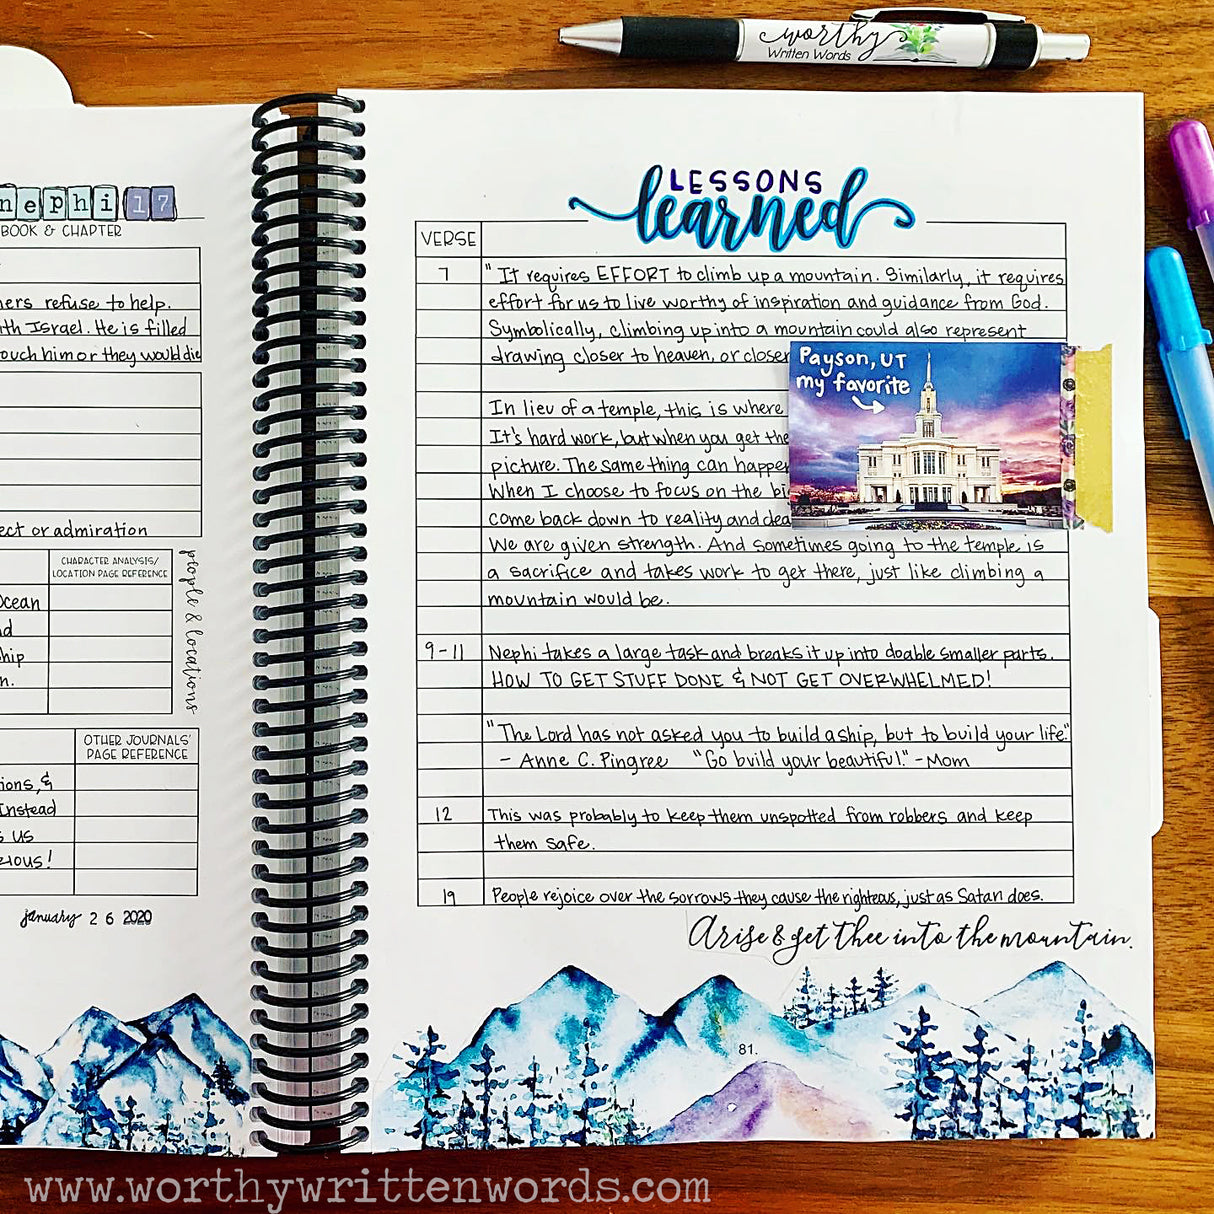 worthy
Written Words
nephi 17
BOOK & CHAPTER
ners refuse to help.
ith Israel. He is filled
touch him or they would die
ect or admiration
CHARACTER ANALYSIS/
LOCATION PAGE REFERENCE
Ocean
nd
hip
n.
people & locations
OTHER JOURNALS'
PAGE REFERENCE
ions, &
Instead
s us
rious!
january 26 2020
LESSONS
learned
VERSE
7 "It requires EFFORT to climb up a mountain. Similarly, it requires
effort for us to live worthy of inspiration and guidance from God.
Symbolically, climbing up into a mountain could also represent
drawing closer to heaven, or closer
In lieu of a temple, this is where
It's hard work, but when you get the
picture. The same thing can happen
When I choose to focus on the big
come back down to reality and dea
We are given strength. And sometimes going to the temple is
a sacrifice and takes work to get there, just like climbing a
mountain would be.
Payson, UT
my favorite
9-11 Nephi takes a large task and breaks it up into doable smaller parts.
HOW TO GET STUFF DONE & NOT GET OVERWHELMED!
"The Lord has not asked you to build a ship, but to build your life."
- Anne C. Pingree "Go build your beautiful." - Mom
12 This was probably to keep them unspotted from robbers and keep
them safe.
19 People rejoice over the sorrows they cause the righteous, just as Satan does.
Arise & get thee into the mountain.
81.
www.worthywrittenwords.com